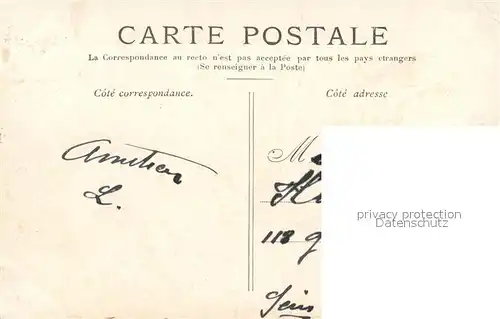 CARTE POSTALE
La Correspondance au recto n'est pas acceptée par tous les pays etrangers
(Se renseigner à la Poste)
Côté correspondance.
Côté adresse
L.
M
118
privacy protection
Datenschutz